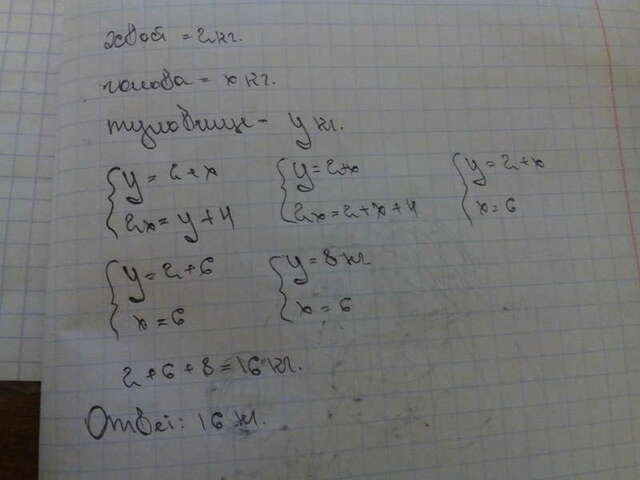 хвост = 2 кг.
голова = x кг.
туловище - y кг.
{ y = 2 + x { y = 2+x { y = 2 + x
{ 2x = y + 4 { 2x = 2 + x + 4 { x = 6
{ y = 2 + 6 { y = 8 кг
{ x = 6 { x = 6
2 + 6 + 8 = 16 кг.
Ответ: 16 кг.